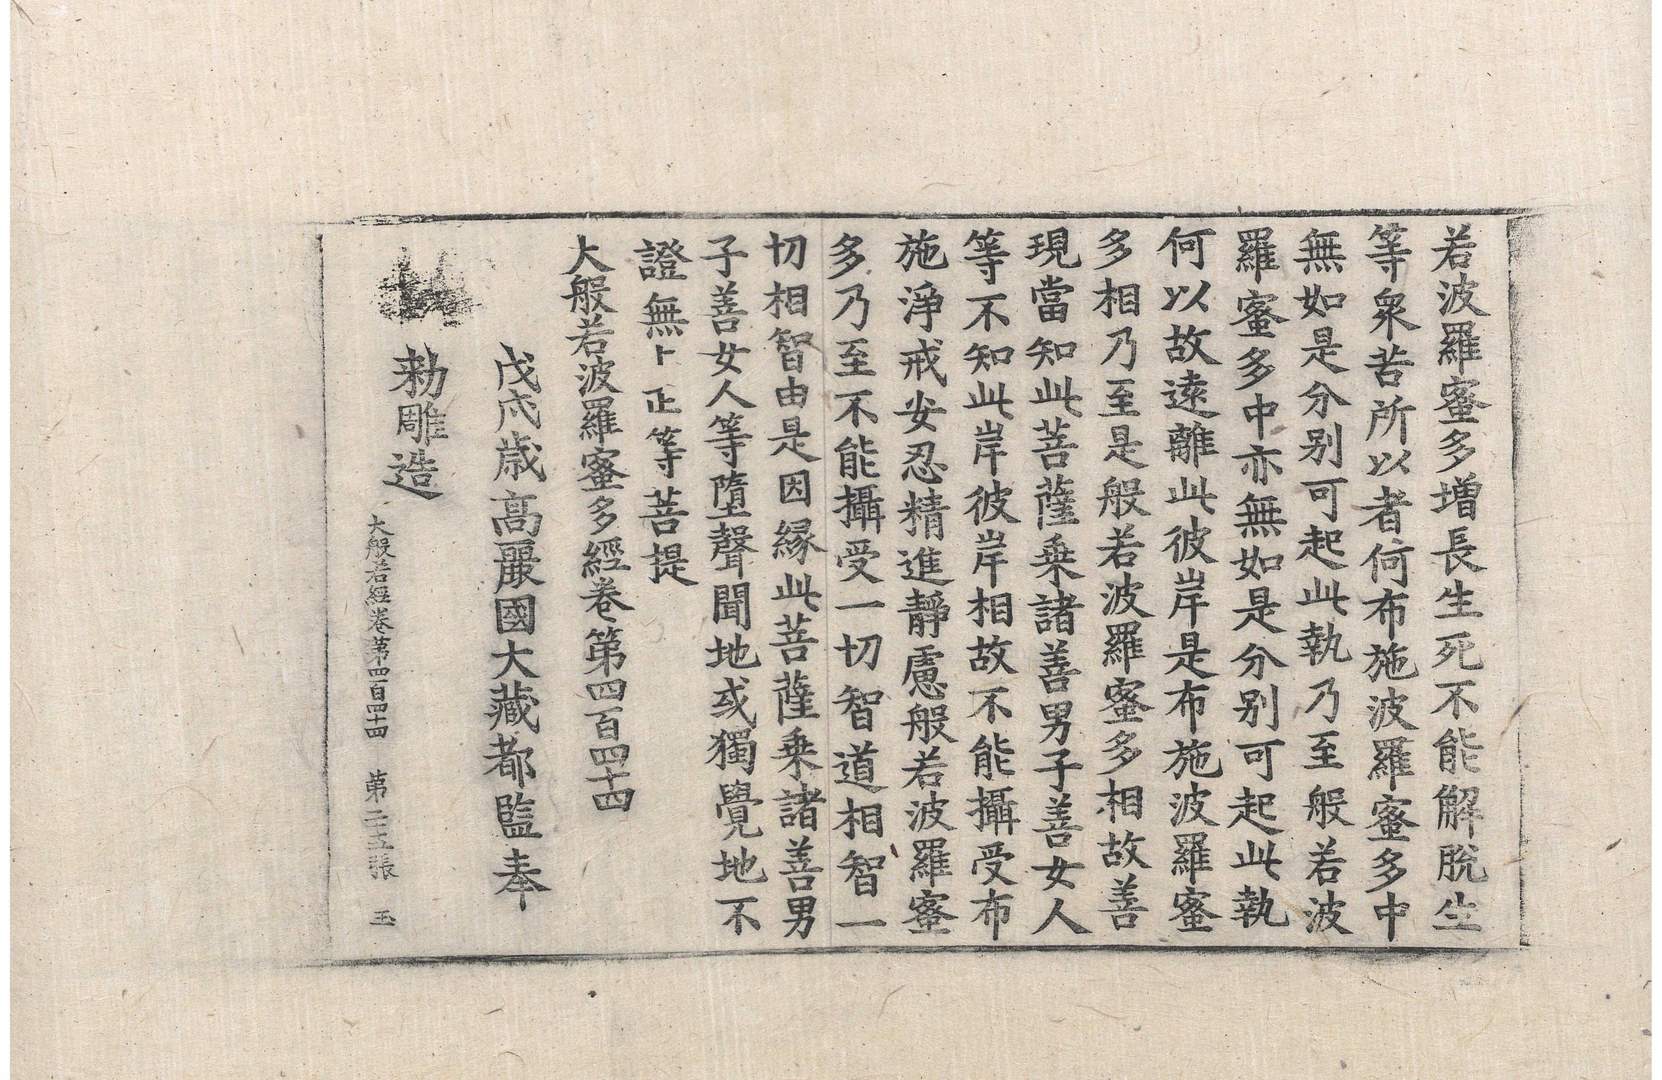 若波羅蜜多增長生死不能解脫生
等衆苦所以者何布施波羅蜜多中
無如是分別可起此執乃至般若波
羅蜜多中亦無如是分別可起此執
何以故遠離此彼岸是布施波羅蜜
多相乃至是般若波羅蜜多相故善
現當知此菩薩乗諸善男子善女人
等不知此岸彼岸相故不能攝受布
施淨戒安忍精進靜慮般若波羅蜜
多乃至不能攝受一切智道相智一
切相智由是因緣此菩薩乗諸善男
子善女人等墮聲聞地或獨覺地不
證無上正等菩提
大般若波羅蜜多經卷第四百四十四
戊戌歳高麗國大藏都監奉
勅雕造
大般若經卷第四百四十四 第二十五張 玉